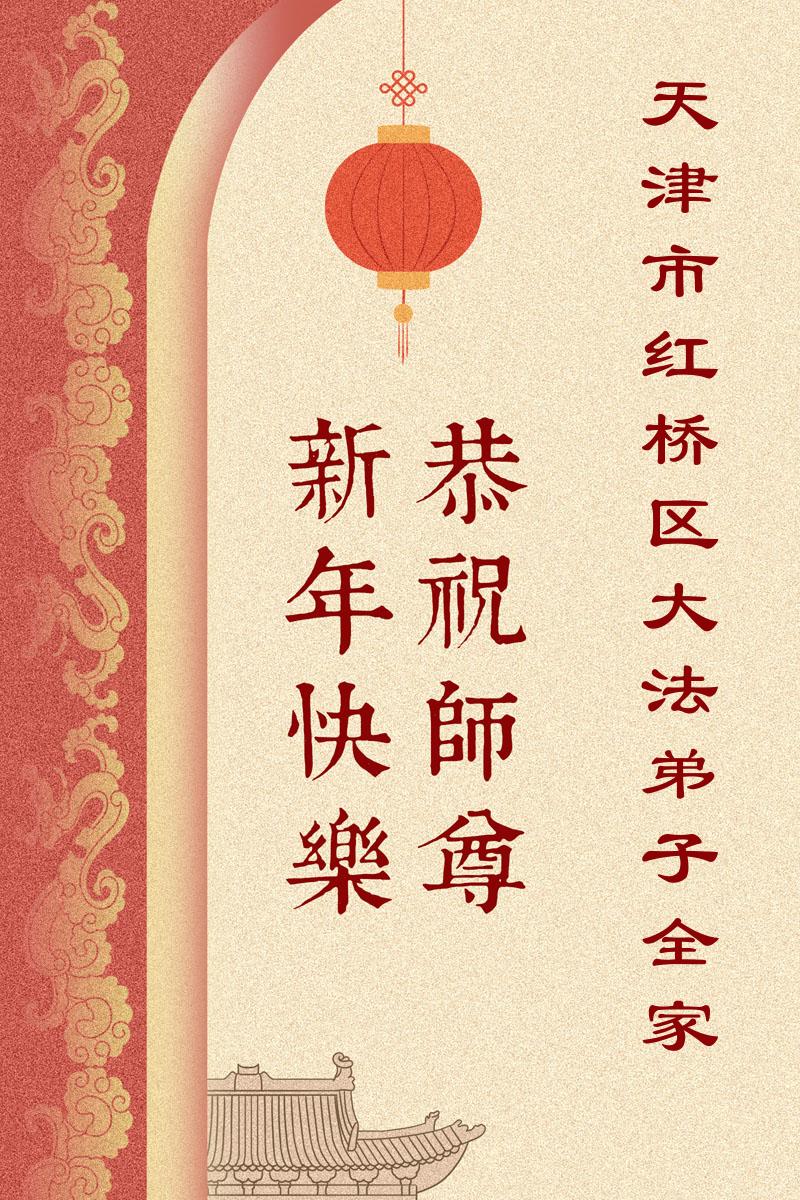 天津市红桥区大法弟子全家
恭祝師尊
新年快樂